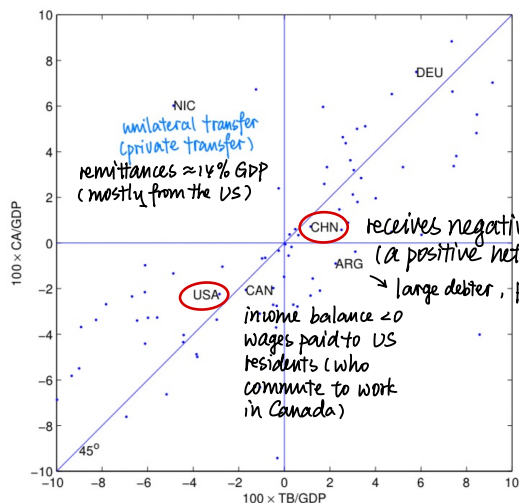 10
8
6
4
2
0
−2
−4
−6
−8
−10
100 × CA/GDP
DEU
NIC
unilateral transfer
(private transfer)
remittances ≈14% GDP
(mostly from the US)
CHN
receives negativ
(a positive net
ARG
↘ large debter, p
USA
CAN
income balance <0
wages paid to US
residents (who
commute to work
in Canada)
45°
−10 −8 −6 −4 −2 0 2 4 6 8 10
100 × TB/GDP